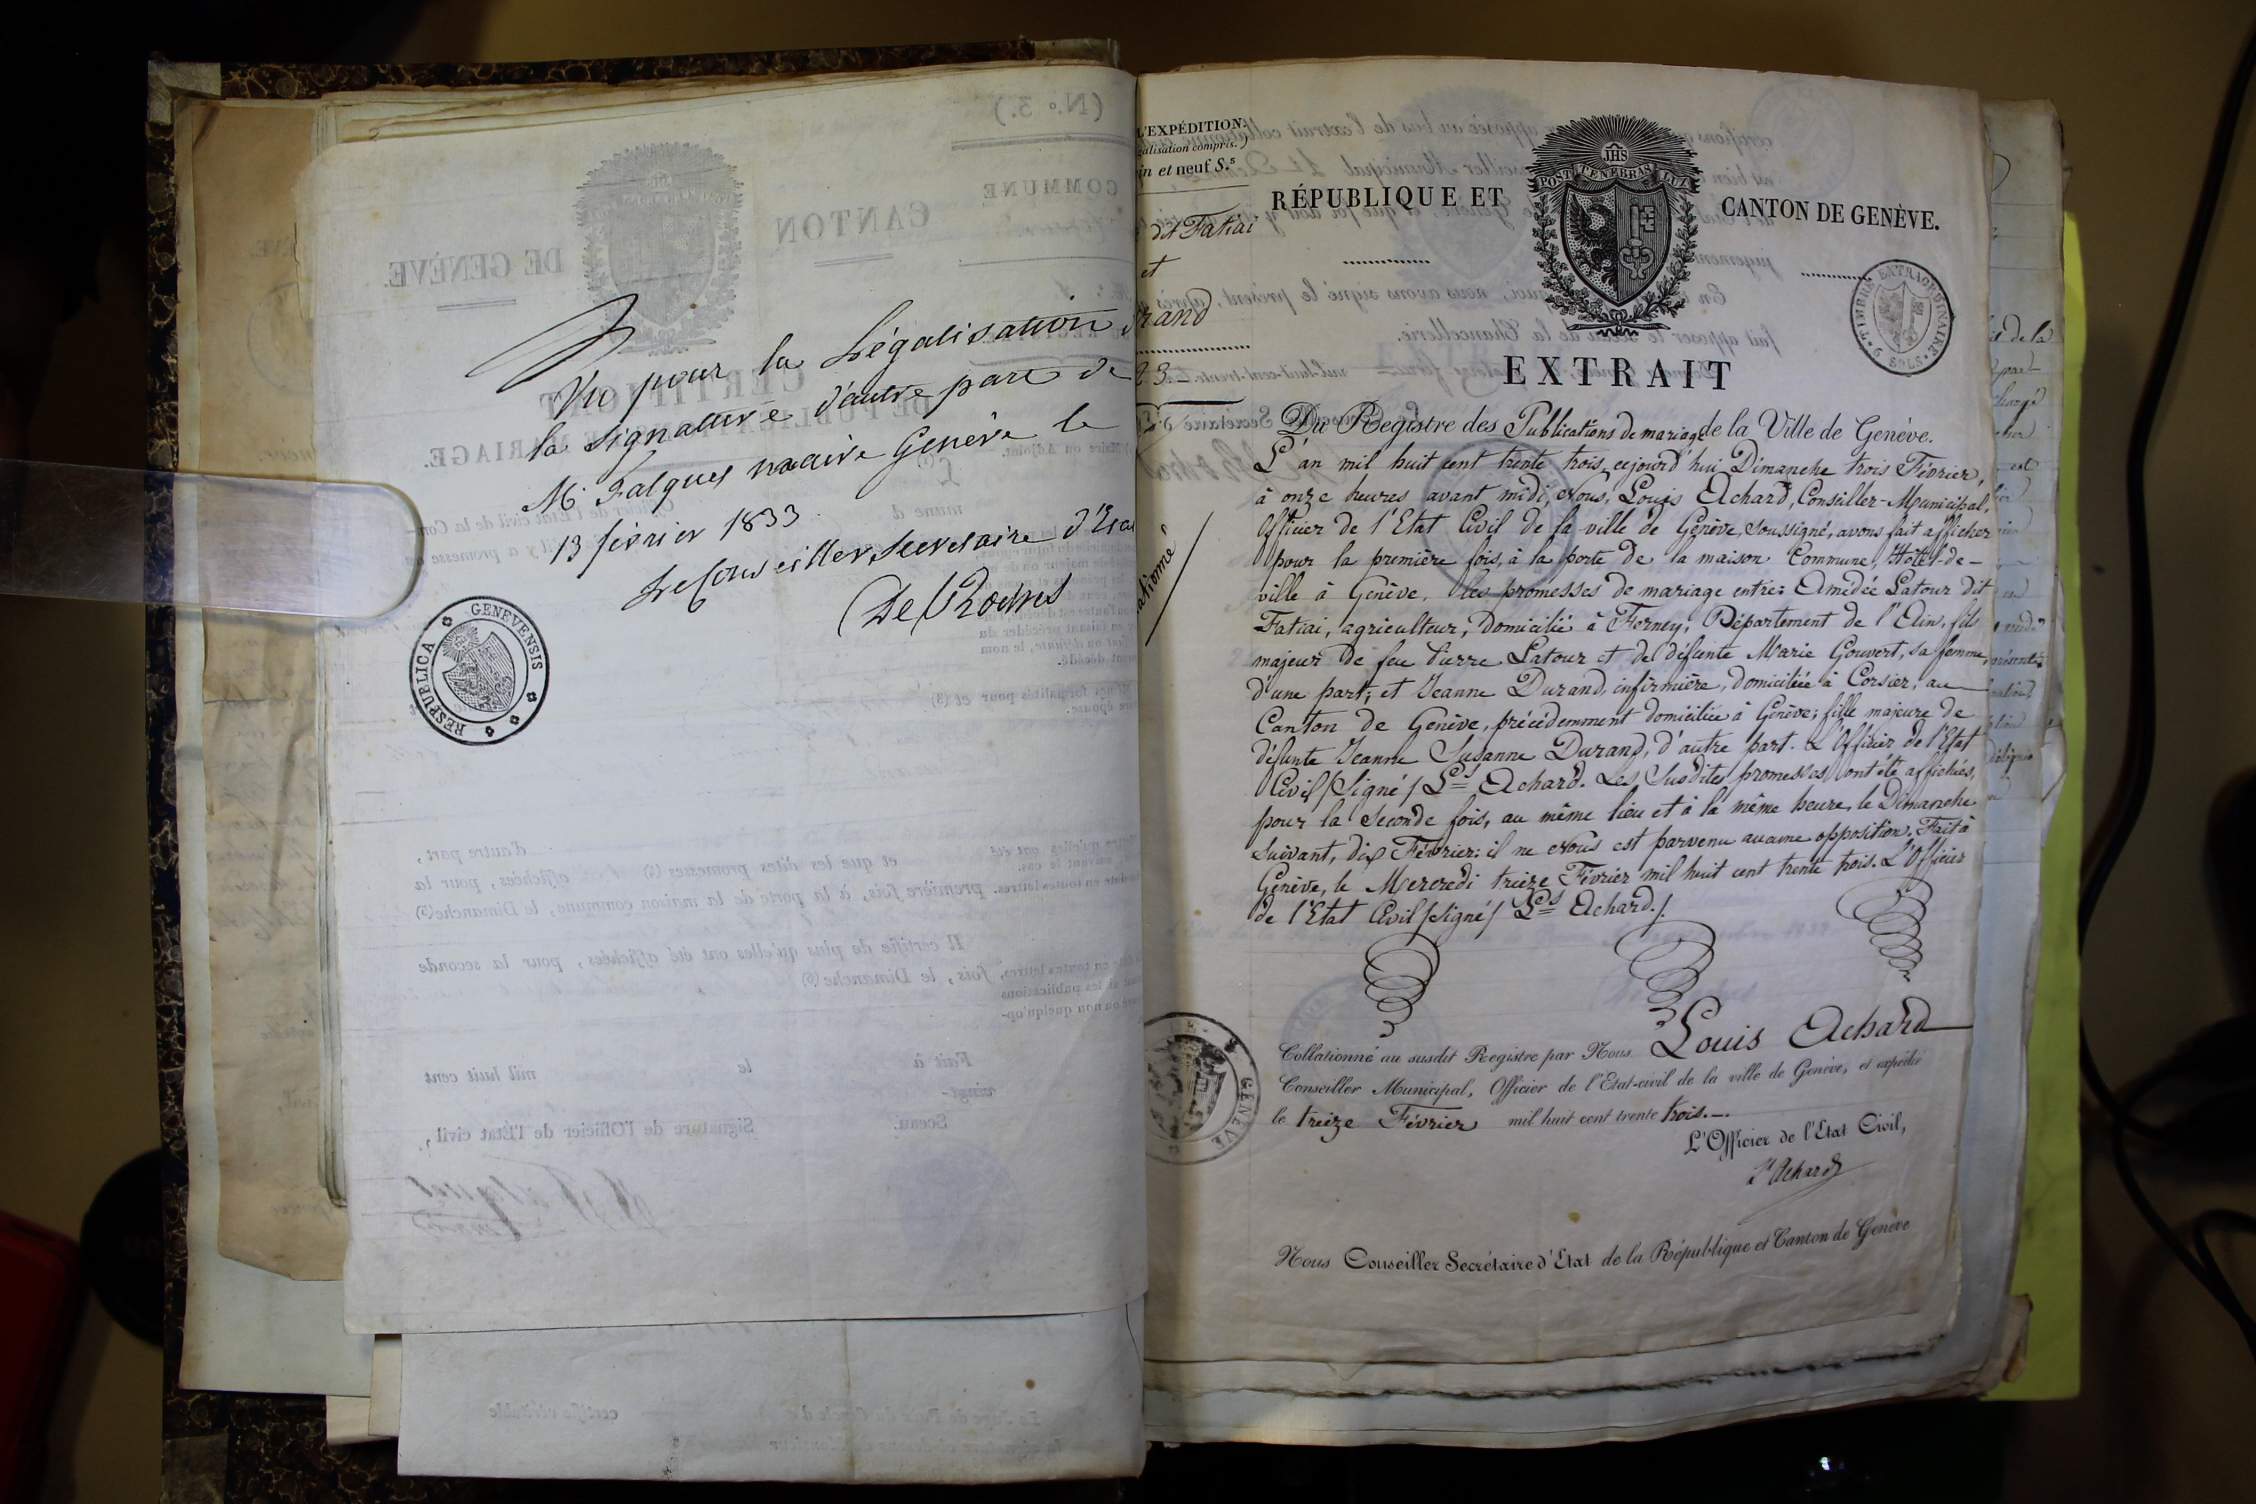 Vu pour la Légalisation de
la signature d'autre part de
M. Falquet maire Genève le
13 février 1833.
Le Conseiller Secretaire d'Etat
De Roches
RESPUBLICA GENEVENSIS
L'EXPÉDITION.
galisation compris.)
in et neuf S.s
dit Fatiai
et
rand
23
ationné
RÉPUBLIQUE ET
CANTON DE GENÈVE.
JHS
POST TENEBRAS LUX
TIMBRE EXTRAORDINAIRE
9 SOLS
EXTRAIT
Du Registre des Publications de mariage de la Ville de Genève.
L'an mil huit cent trente trois, cejourd'hui Dimanche trois Février,
à onze heures avant midi, Nous, Louis Achard, Conseiller-Municipal,
Officier de l'Etat Civil de la ville de Genève, soussigné, avons fait afficher
pour la première fois, à la porte de la maison Commune, Hôtel-de-
ville à Genève, les promesses de mariage entre: Amédée Latour dit
Fatiai, agriculteur, domicilié à Ferney, Département de l'Ain, fils
majeur de feu Pierre Latour et de défunte Marie Gouvert, sa femme,
d'une part; et Jeanne Durand, infirmière, domiciliée à Corsier, au
Canton de Genève, précédemment domiciliée à Genève; fille majeure de
défunte Jeanne Susanne Durand, d'autre part. L'Officier de l'Etat
Civil /Signé/ Ls Achard. Les susdites promesses ont été affichées,
pour la seconde fois, au même lieu et à la même heure, le Dimanche
suivant, dix Février: il ne Nous est parvenu aucune opposition. Fait à
Genève, le Mercredi treize Février mil huit cent trente trois. L'Officier
de l'Etat Civil /Signé/ Ls Achard./.
Collationné au susdit Registre par Nous Louis Achard
Conseiller Municipal, Officier de l'Etat-civil de la ville de Genève, et expédié
le treize Février mil huit cent trente trois.-.
L'Officier de l'Etat Civil,
Ls Achard
GENÈVE
Nous Conseiller Secrétaire d'Etat de la République et Canton de Genève